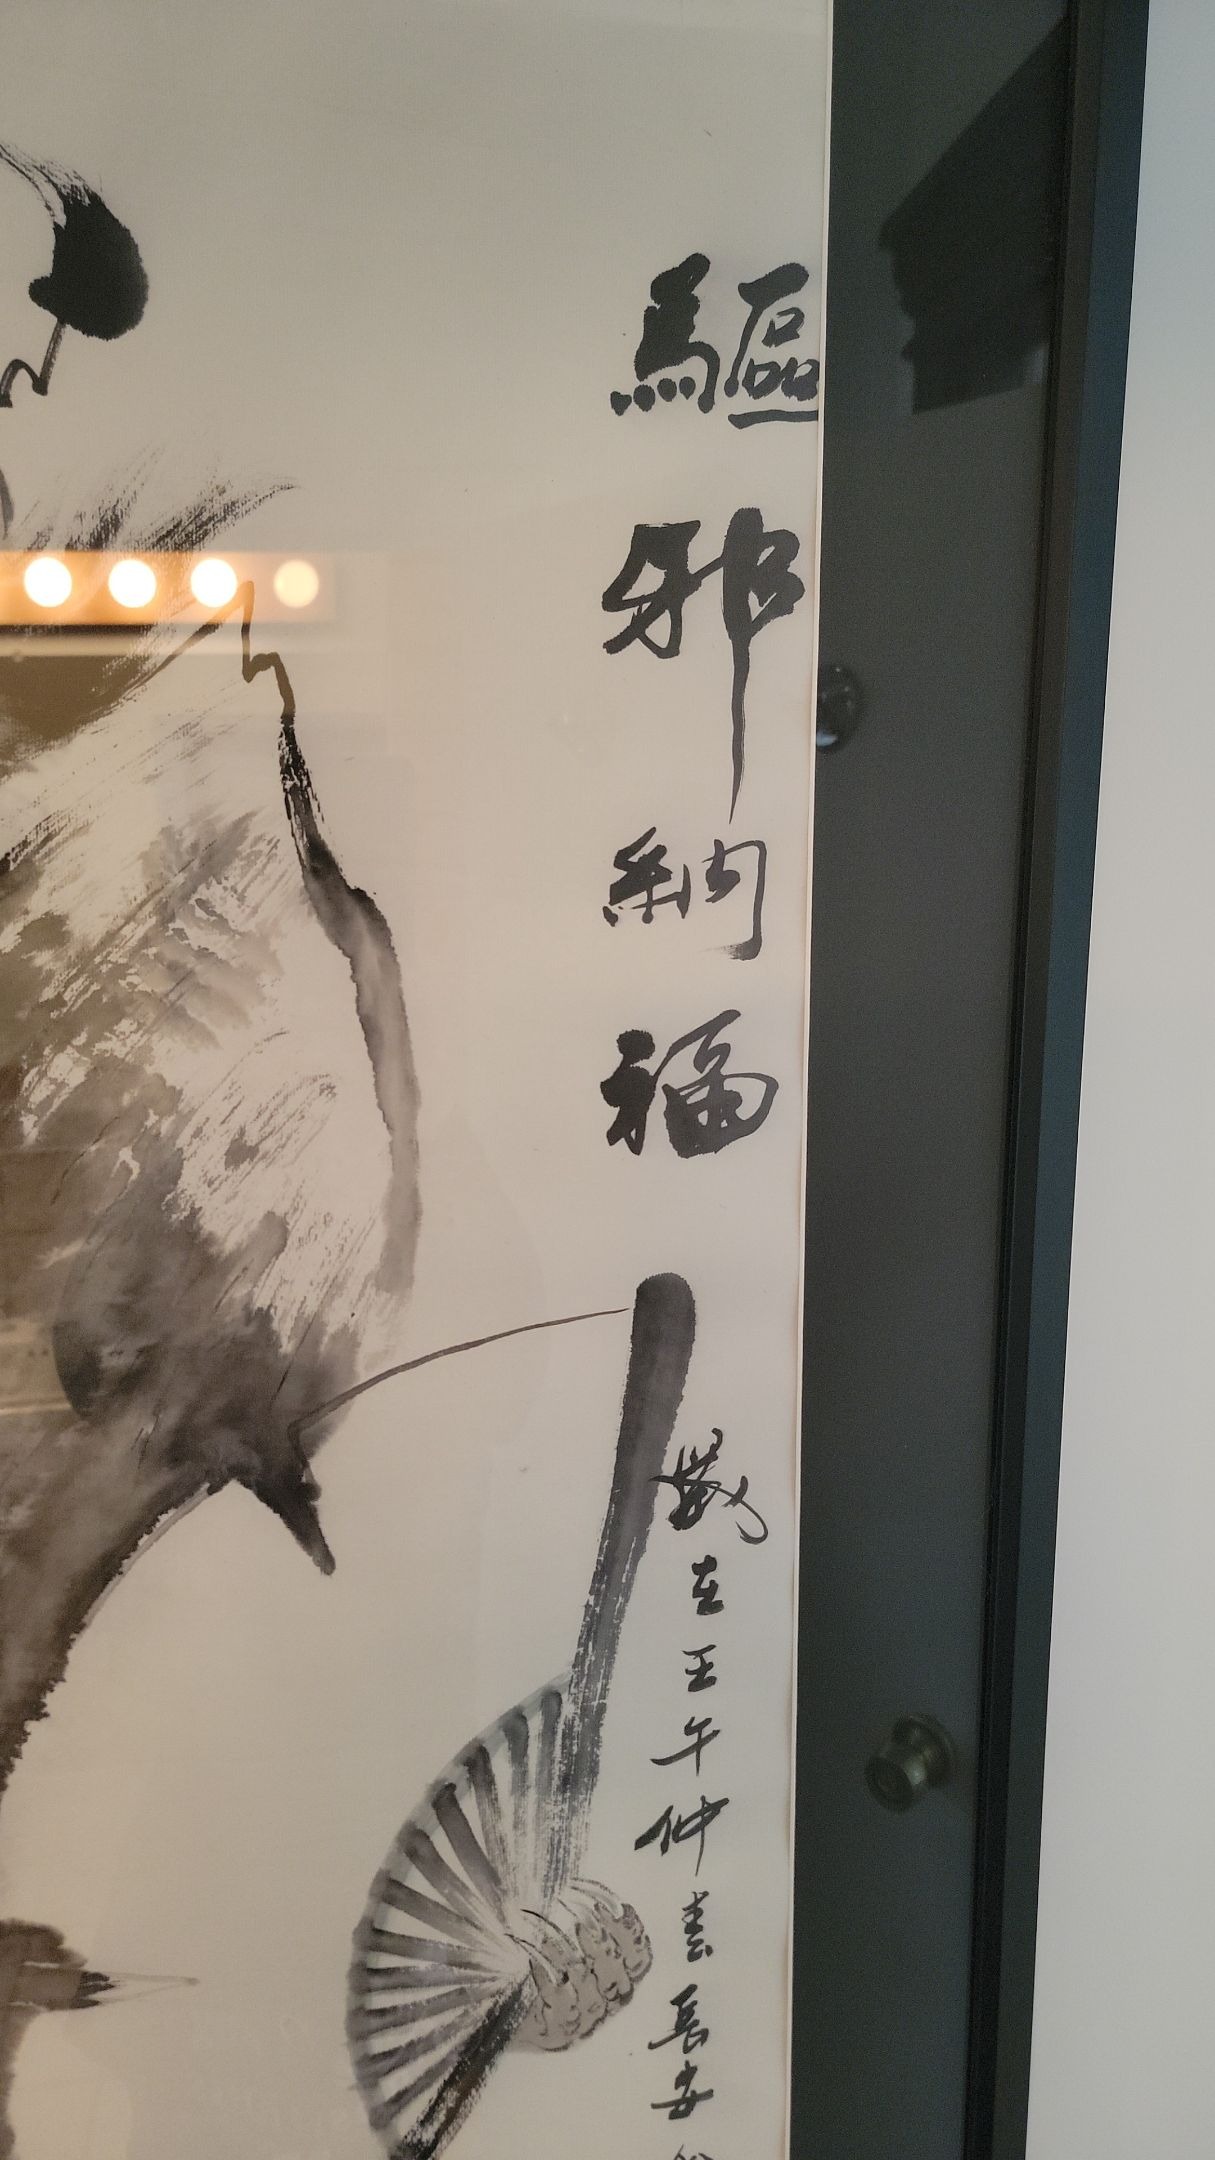 驅邪納福
歲在壬午仲春長安